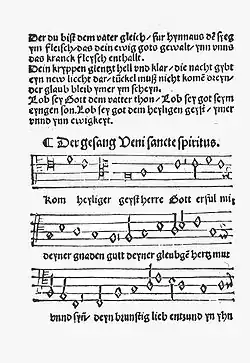 Der du bist dem vater gleich / für hynnaus dē syeg
ym fleisch / das dein ewig gots gewalt / ynn vnns
das kranck fleysch enthallt.
Dein kryppen glentzt hell vnd klar / die nacht gybt
eyn new liecht dar / tückel muß nicht komē dreyn /
der glaub bleib ymer ym scheyn.
Lob sey Gott dem vatter thon / Lob sey got seym
eyngen son. Lob sey got dem heyligen geyst / ymer
vnnd ynn ewigkeyt.
¶ Der gesang Veni sancte spiritus.
Kom heyliger geyst herre Gott erful mit
deyner gnaden gutt deyner gleubgē hertz mut
vnnd syn / deyn brunstig lieb entzund yn yhn